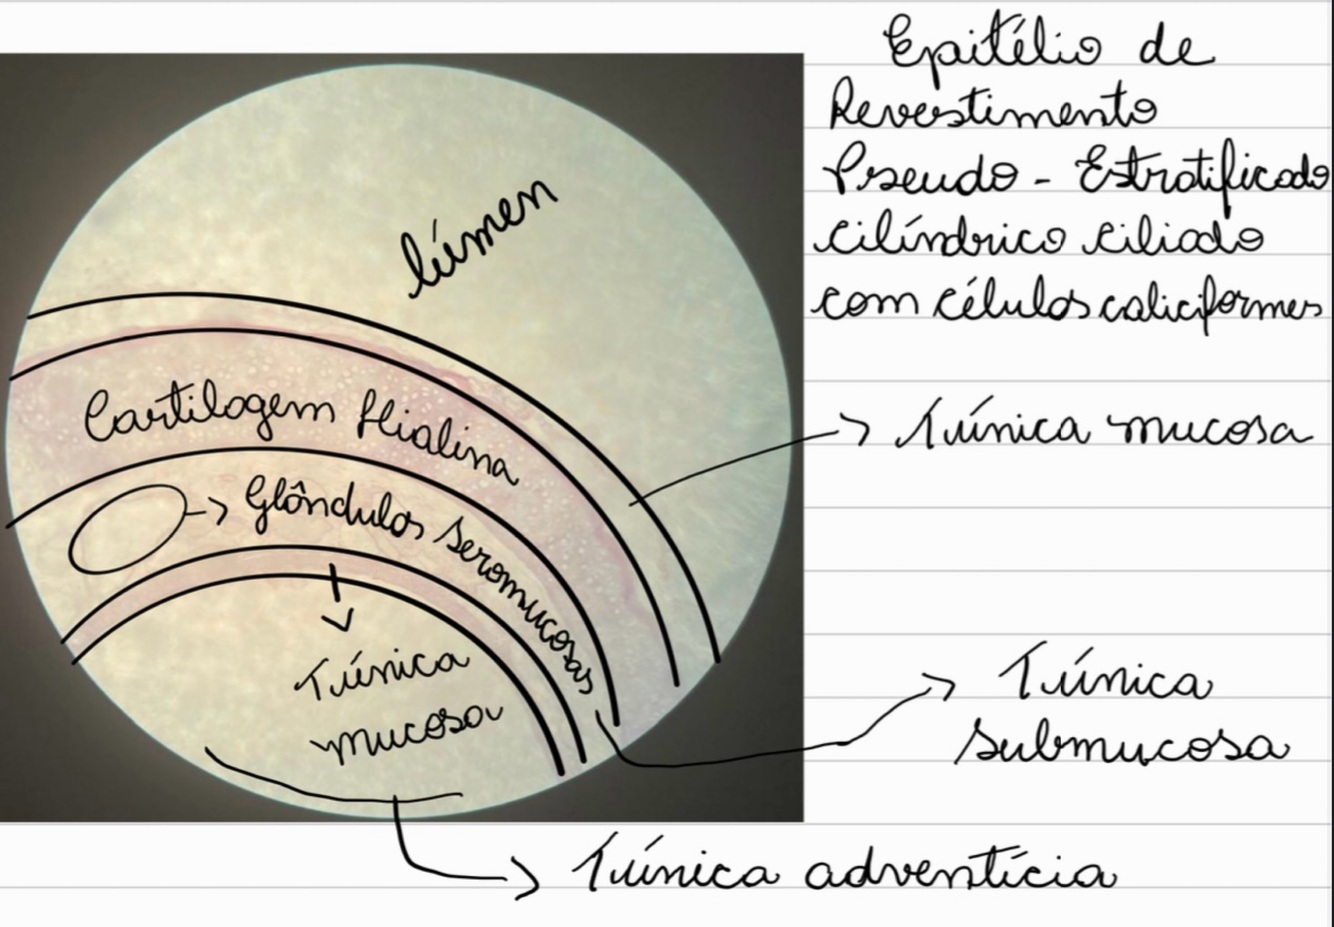 Epitélio de
Revestimento
Pseudo - Estratificado
cilíndrico ciliado
com células caliciformes
lúmen
Cartilagem Hialina
-> Túnica mucosa
-> Glândulas seromucosas
Túnica
mucosa
-> Túnica
submucosa
-> Túnica adventícia